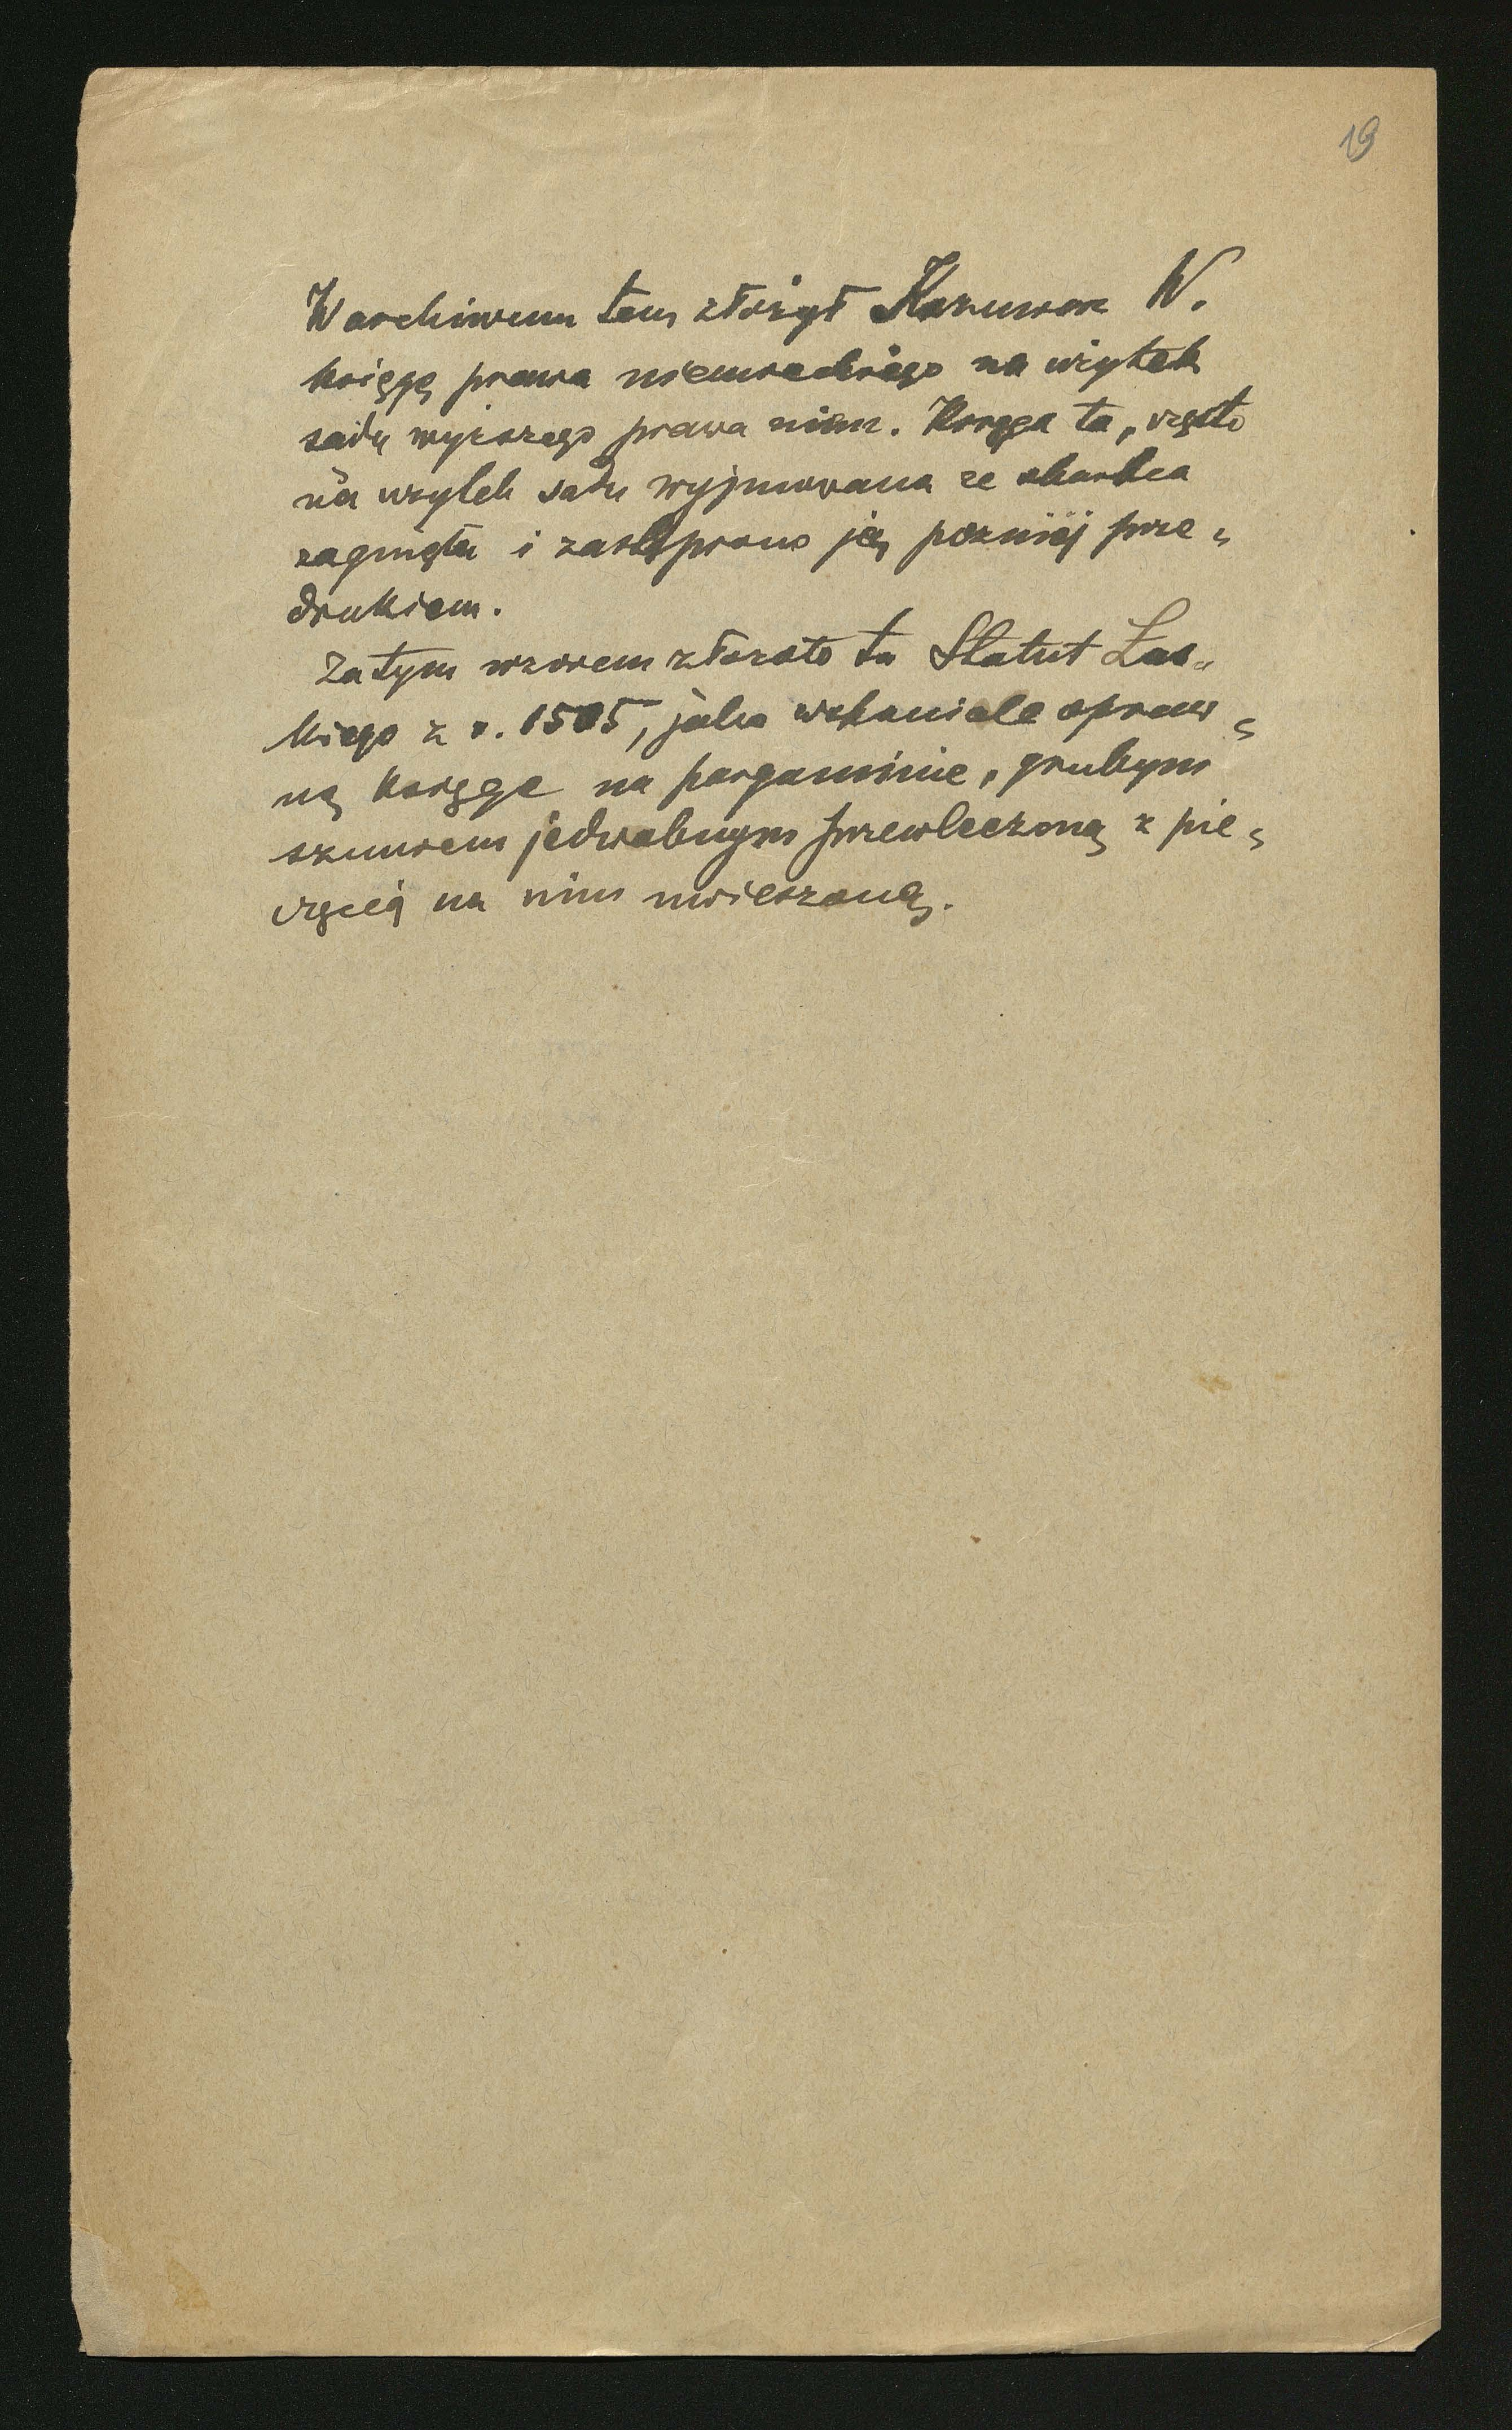 19
W archiwum tem złożył Kazimierz W.
księgę prawa niemieckiego na użytek
sądu wyższego prawa niem. Księga ta, często
na użytek sądu wyjmowana ze skarbca
zaginęła i zastąpiono ją później prze„
drukiem.
Za tym wzorem złożono tu Statut Łas„
kiego z r. 1505, jako wspaniale opraw„
ną księgę na pargaminie, grubym
sznurem jedwabnym przewleczoną z pie„
częcią na nim uwieszoną.